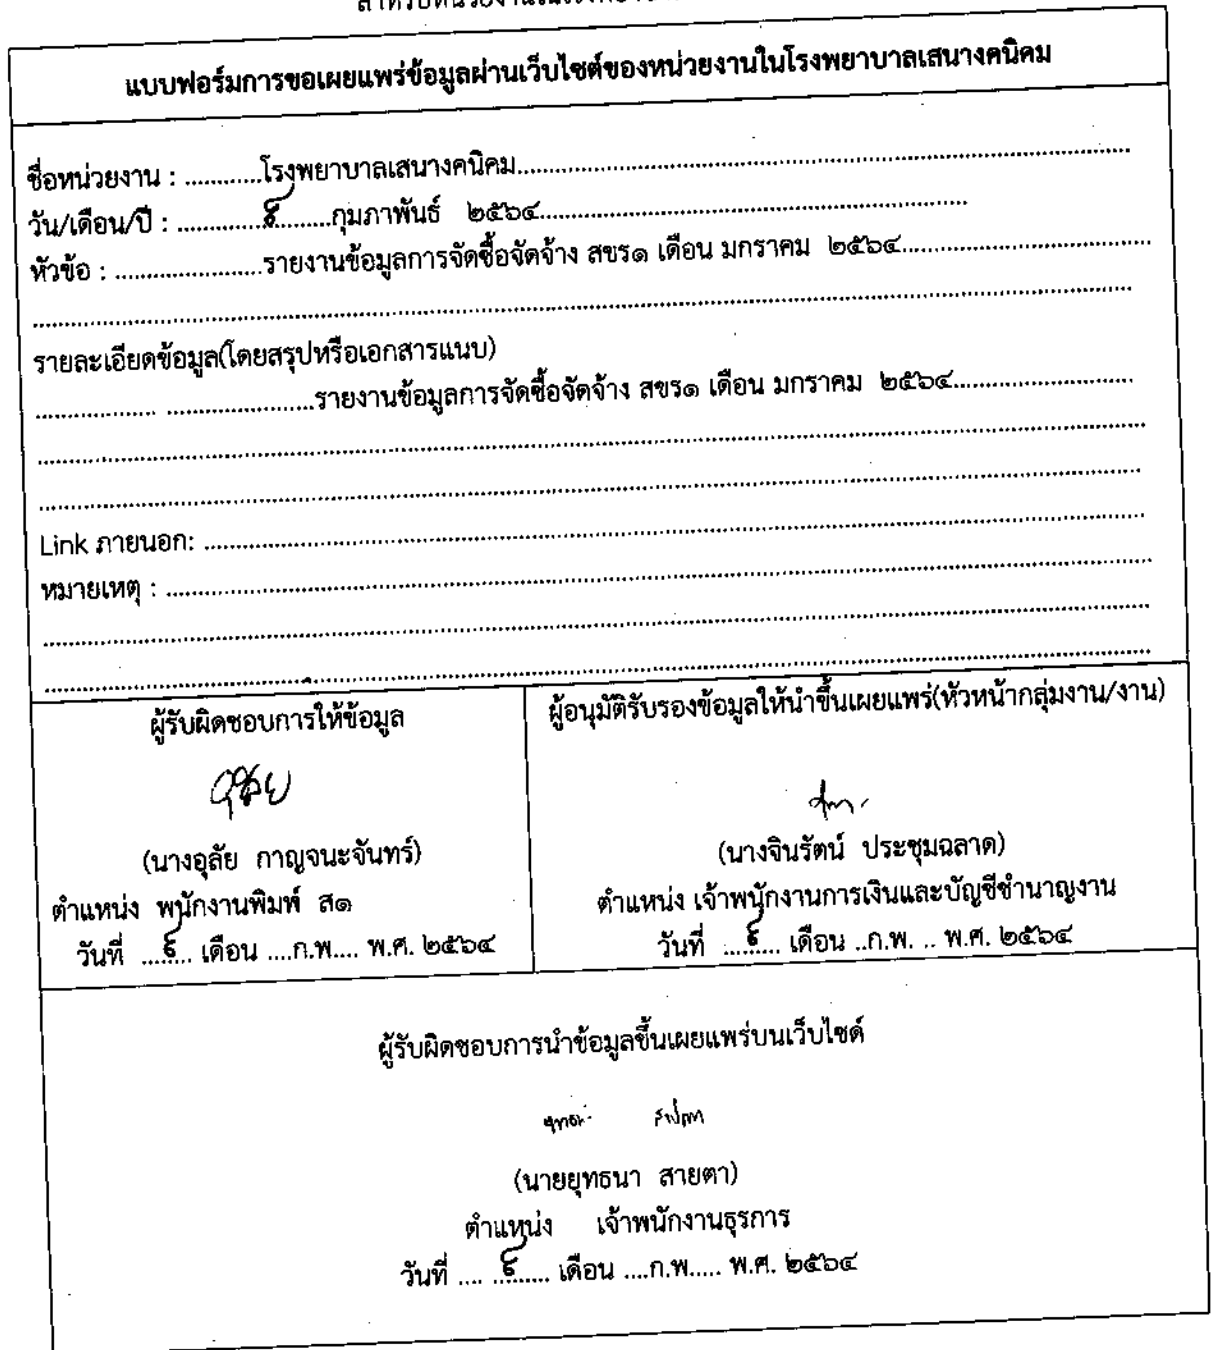 แบบฟอร์มการขอเผยแพร่ข้อมูลผ่านเว็บไซต์ของหน่วยงานในโรงพยาบาลเสนางคนิคม
ชื่อหน่วยงาน : ............โรงพยาบาลเสนางคนิคม............
วัน/เดือน/ปี : ............กุมภาพันธ์ ๒๕๖๔............
หัวข้อ : ............รายงานข้อมูลการจัดซื้อจัดจ้าง สขร๑ เดือน มกราคม ๒๕๖๔............
รายละเอียดข้อมูล(โดยสรุปหรือเอกสารแนบ)
............รายงานข้อมูลการจัดซื้อจัดจ้าง สขร๑ เดือน มกราคม ๒๕๖๔............
Link ภายนอก: ............
หมายเหตุ : ............
ผู้รับผิดชอบการให้ข้อมูล
อุลัย
(นางอุลัย กาญจนะจันทร์)
ตำแหน่ง พนักงานพิมพ์ ส๑
วันที่ ........ เดือน ....ก.พ.... พ.ศ. ๒๕๖๔
ผู้อนุมัติรับรองข้อมูลให้นำขึ้นเผยแพร่(หัวหน้ากลุ่มงาน/งาน)
(นางจินรัตน์ ประชุมฉลาด)
ตำแหน่ง เจ้าพนักงานการเงินและบัญชีชำนาญงาน
วันที่ ........ เดือน ..ก.พ. .. พ.ศ. ๒๕๖๔
ผู้รับผิดชอบการนำข้อมูลขึ้นเผยแพร่บนเว็บไซต์
(นายยุทธนา สายตา)
ตำแหน่ง เจ้าพนักงานธุรการ
วันที่ .... ........ เดือน ....ก.พ..... พ.ศ. ๒๕๖๔